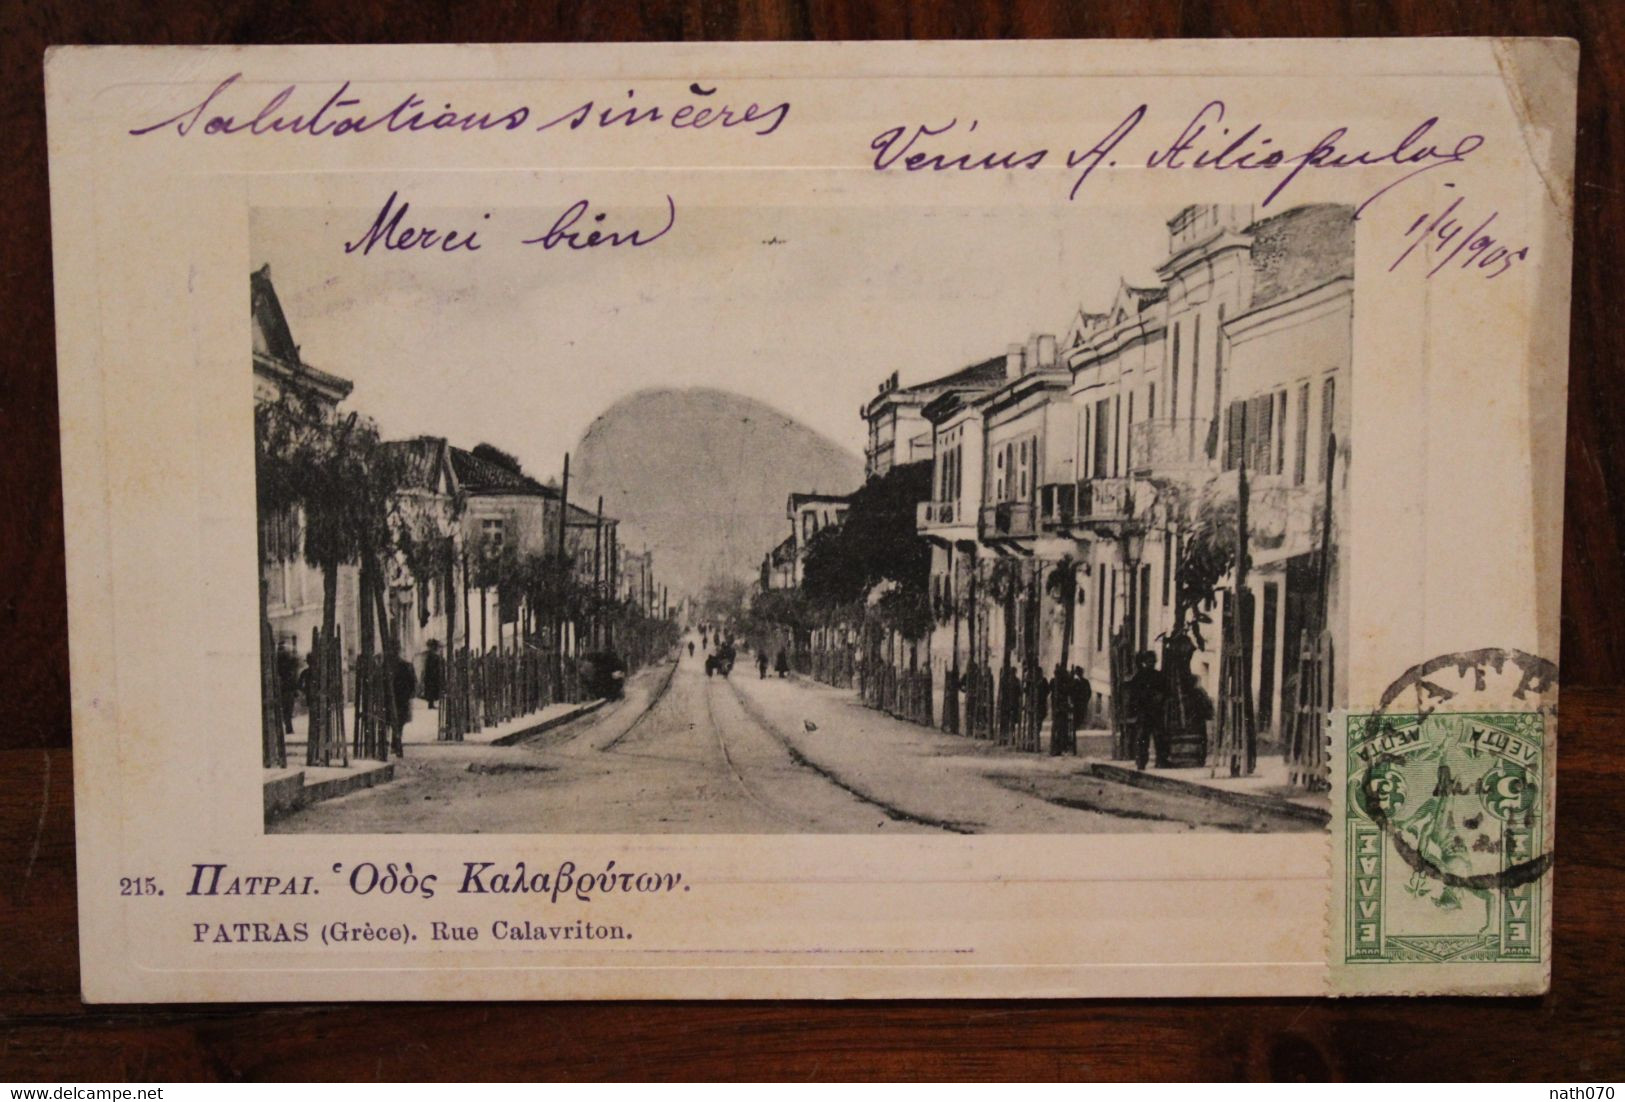 Salutations sincères
Venus A. Stiliopulos
Merci bien
1/4/905
215. ΠΑΤΡΑΙ. Ὁδὸς Καλαβρύτων.
PATRAS (Grèce). Rue Calavriton.
ΠΑΤΡ
5 ΛΕΠΤΑ ΛΕΠΤΑ 5
ΕΛΛΑΣ ΕΛΛΑΣ
nath070